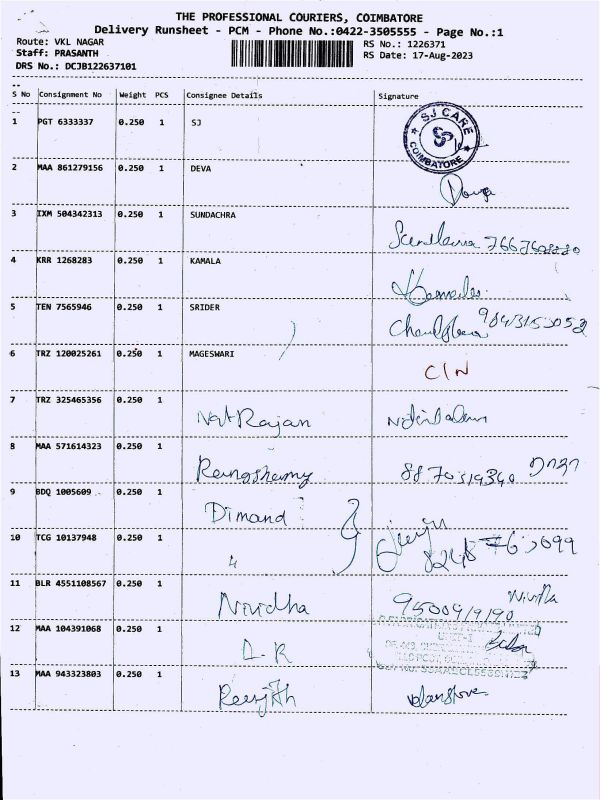 THE PROFESSIONAL COURIERS, COIMBATORE
Delivery Runsheet - PCM - Phone No.:0422-3505555 - Page No.:1
Route: VKL NAGAR RS No.: 1226371
Staff: PRASANTH RS Date: 17-Aug-2023
DRS No.: DCJB122637101
S No Consignment No Weight PCS Consignee Details Signature
1 PGT 6333337 0.250 1 SJ
SJ CARE
COIMBATORE
2 MAA 861279156 0.250 1 DEVA
3 IXM 504342313 0.250 1 SUNDACHRA
4 KRR 1268283 0.250 1 KAMALA
5 TEN 7565946 0.250 1 SRIDER
6 TRZ 120025261 0.250 1 MAGESWARI
C/N
7 TRZ 325465356 0.250 1
NatRajan
8 MAA 571614323 0.250 1
9 BDQ 1005609 0.250 1
Dimand
10 TCG 10137948 0.250 1
"
11 BLR 4551108567 0.250 1
Nividha
12 MAA 104391068 0.250 1
D.R
UNIT-I
13 MAA 943323803 0.250 1